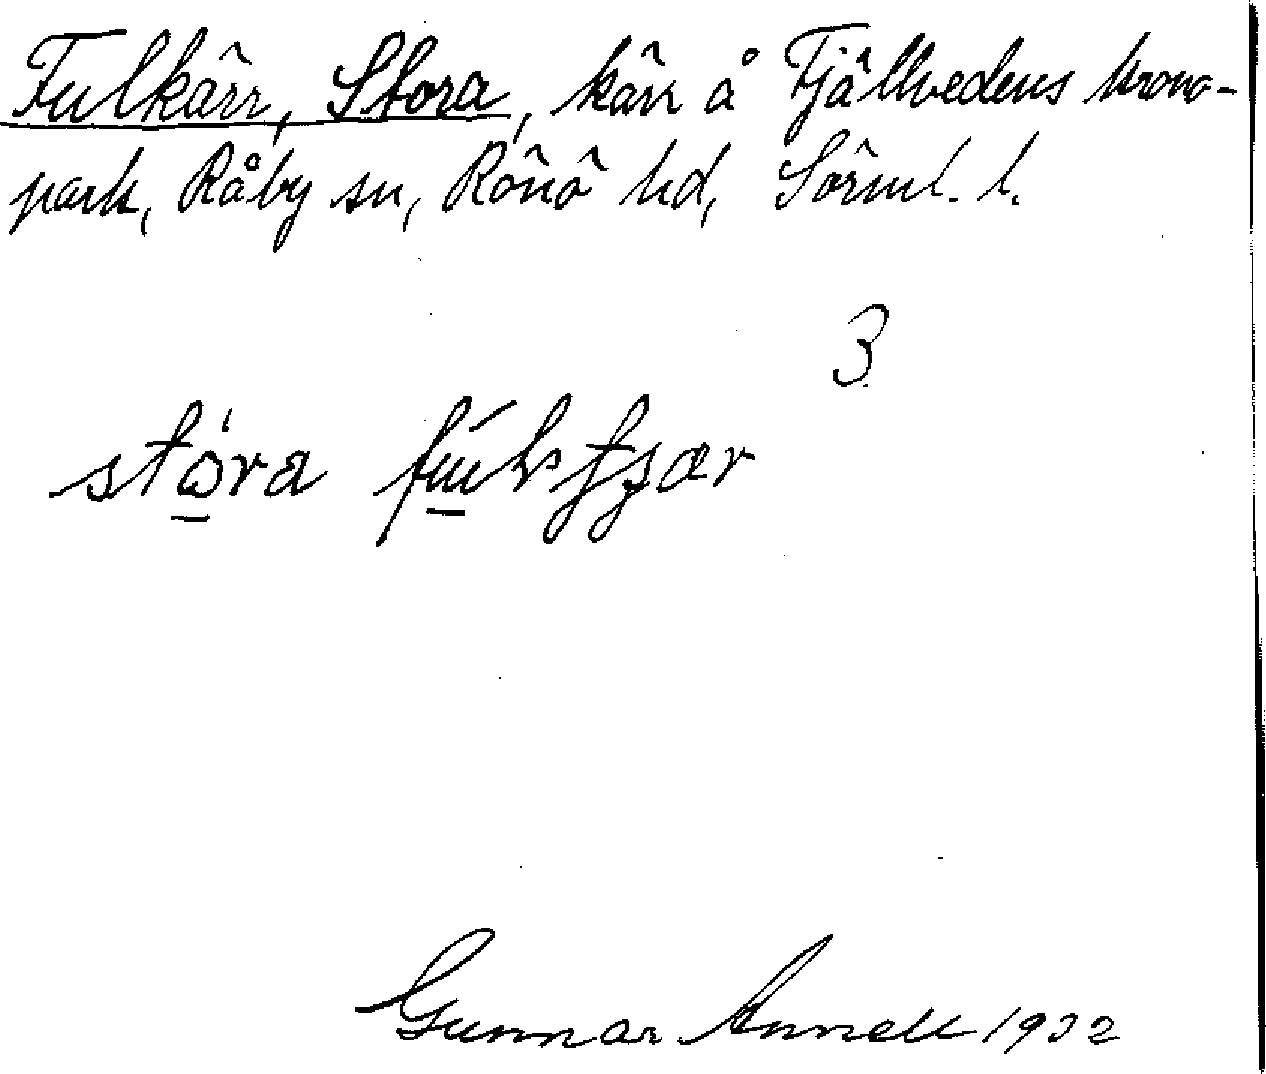 Fulkärr, Stora, kärr å Fjällvedens krono-
park, Råby sn, Rönö hd, Sörml. l.
3
stora
Gunnar Annell 1932